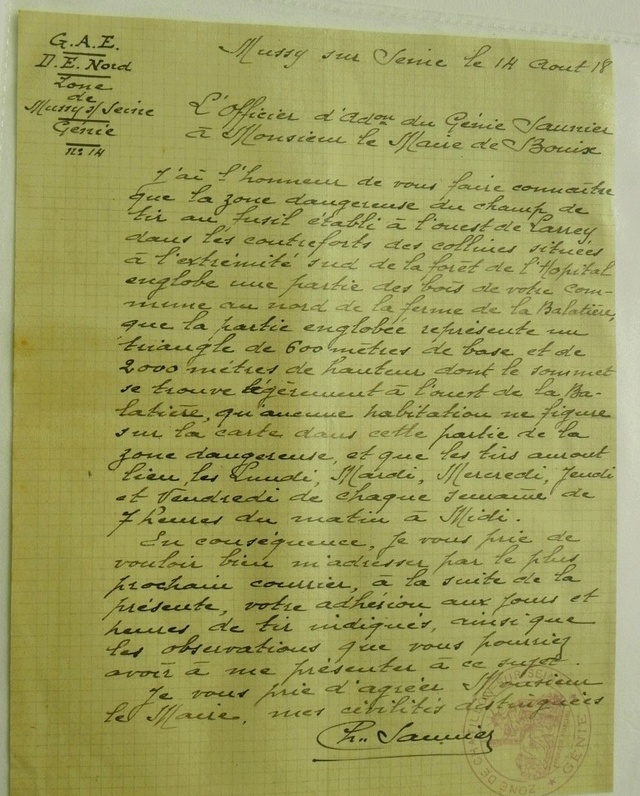 G.A.E.
D.E. Nord
Zone
de
Mussy s/ Seine
Génie
n° 14
Mussy sur Seine le 14 Aout 18
L'Officier d'Adon du Génie Saunier
à Monsieur le Maire de Bouix
J'ai l'honneur de vous faire connaître
que la zone dangereuse du champ de
tir au fusil établi à l'ouest de Larrey
dans les contreforts des collines situées
à l'extrémité sud de la forêt de l'Hopital
englobe une partie des bois de votre com-
mune au nord de la ferme de la Balatière,
que la partie englobée représente un
triangle de 600 mètres de base et de
2000 mètres de hauteur dont le sommet
se trouve légèrement à l'ouest de la Ba-
latière, qu'aucune habitation ne figure
sur la carte dans cette partie de la
zone dangereuse, et que les tirs auront
lieu les Lundi, Mardi, Mercredi, Jeudi
et Vendredi de chaque semaine de
7 heures du matin à Midi.
En conséquence, je vous prie de
vouloir bien m'adresser par le plus
prochain courrier, à la suite de la
présente, votre adhésion aux jours et
heures de tir indiqués, ainsi que
les observations que vous pourriez
avoir à me présenter à ce sujet.
Je vous prie d'agréer Monsieur
le Maire, mes civilités distinguées
Ch. Saunier
ZONE DE
GENIE